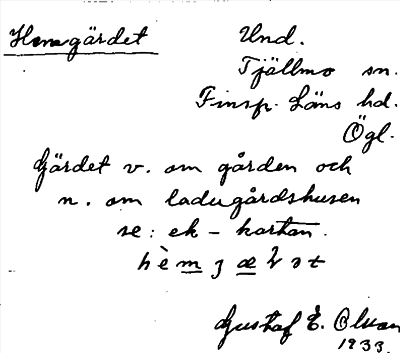 Hemgärdet Und.
Tjällmo sn.
Finsp. Läns hd.
Ögl.
Gärdet v. om gården och
n. om ladugårdshusen
se: ek-kartan.
Gustaf E. Olsson
1933.